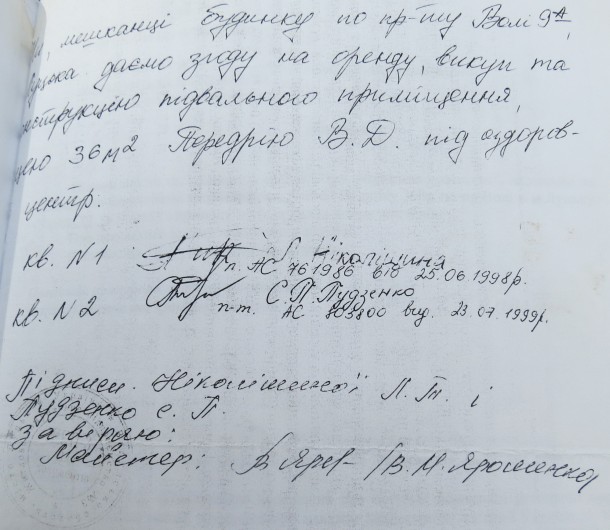 мешканці будинку по пр-ту Волі 9А,
даємо згоду на оренду, викуп та
підвального приміщення,
36 м2 Передрію В. Д. під оздоров-
центр.
кв. N 1 Ніколішина
п. АС 761986 від 25.06.1998р.
кв. N 2 С.П. Пудзенко
п-т. АС 803800 вид. 23.07.1999р.
Підписи Ніколішиної Л. Т. і
Пудзенко С. П.
завіряю:
Майстер: /В. М. Ярошенко/